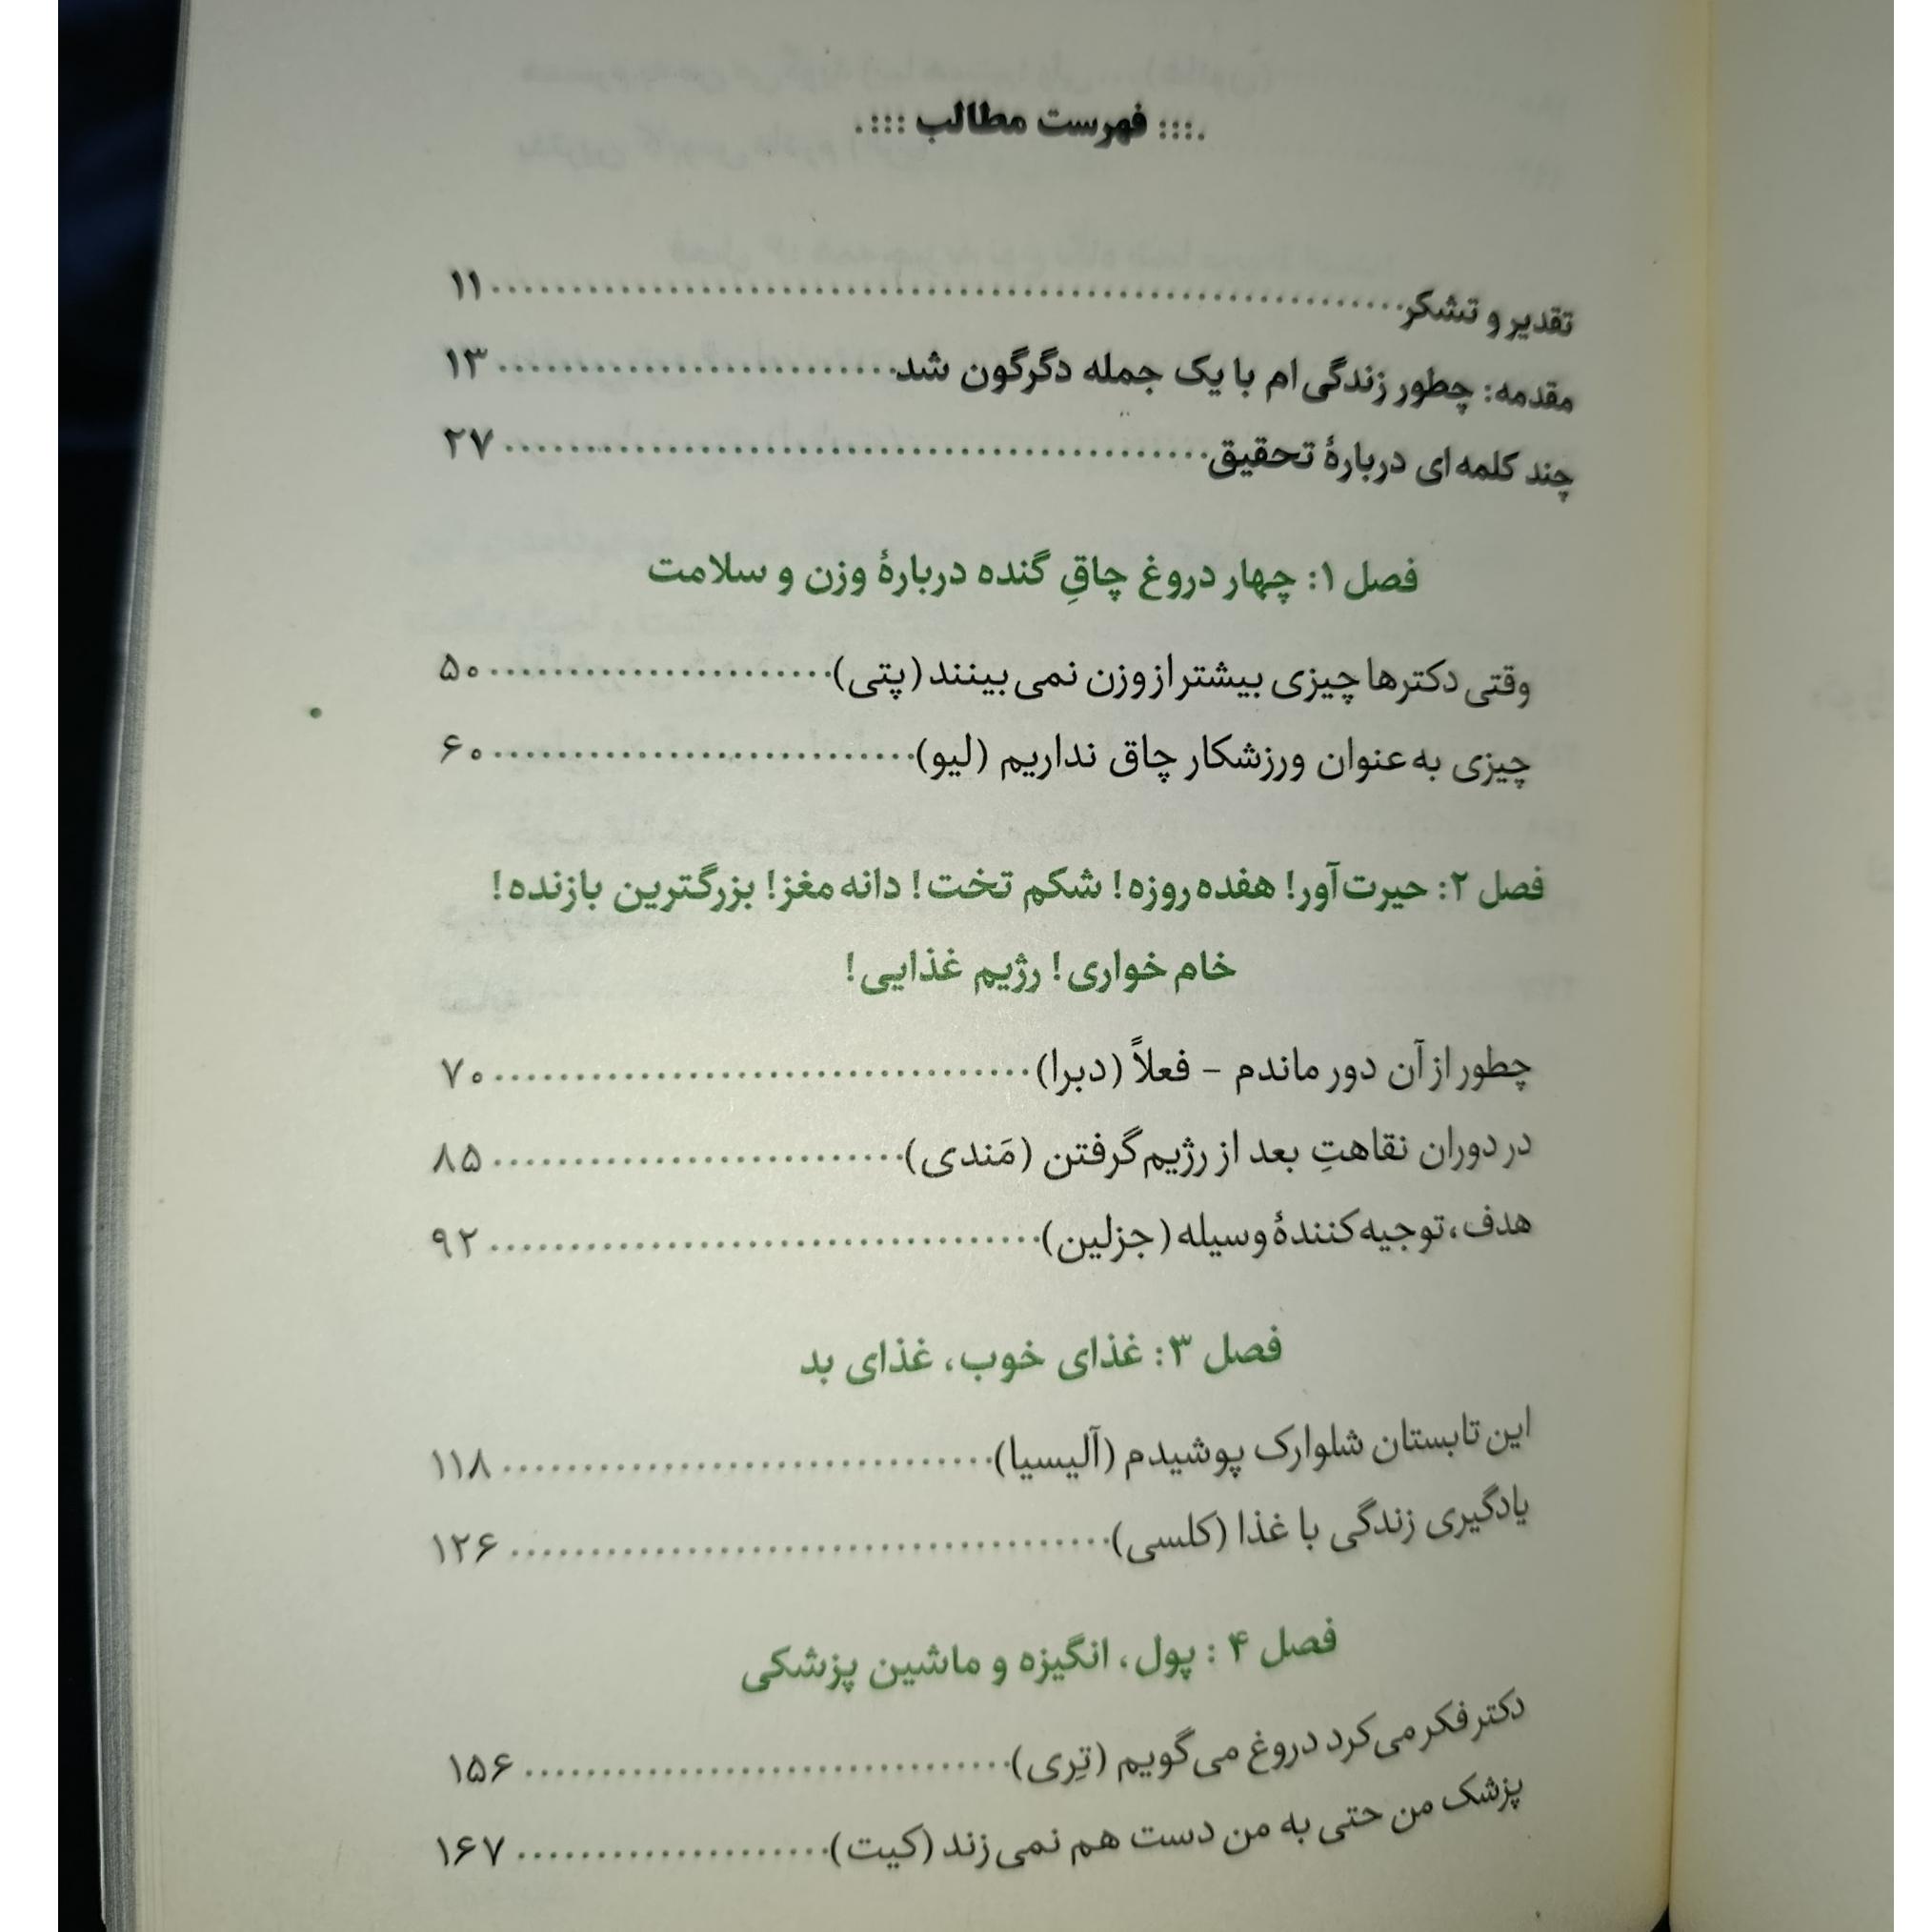 .:::‌ فهرست مطالب :::.
تقدیر و تشکر ........ ۱۱
مقدمه: چطور زندگی‌ام با یک جمله دگرگون شد ........ ۱۳
چند کلمه‌ای دربارهٔ تحقیق ........ ۲۷
فصل ۱: چهار دروغ چاقِ گنده دربارهٔ وزن و سلامت
وقتی دکترها چیزی بیشتر از وزن نمی‌بینند (پتی) ........ ۵۰
چیزی به‌عنوان ورزشکار چاق نداریم (لیو) ........ ۶۰
فصل ۲: حیرت‌آور! هفده‌روزه! شکم تخت! دانه مغز! بزرگترین بازنده!
خام‌خواری! رژیم غذایی!
چطور از آن دور ماندم – فعلاً (دبرا) ........ ۷۰
در دوران نقاهتِ بعد از رژیم‌گرفتن (مَندی) ........ ۸۵
هدف، توجیه‌کنندهٔ وسیله (جزلین) ........ ۹۲
فصل ۳: غذای خوب، غذای بد
این تابستان شلوارک پوشیدم (آلیسیا) ........ ۱۱۸
یادگیری زندگی با غذا (کلسی) ........ ۱۲۶
فصل ۴ : پول، انگیزه و ماشین پزشکی
دکتر فکر می‌کرد دروغ می‌گویم (تِری) ........ ۱۵۶
پزشک من حتی به من دست هم نمی‌زند (کیت) ........ ۱۶۷